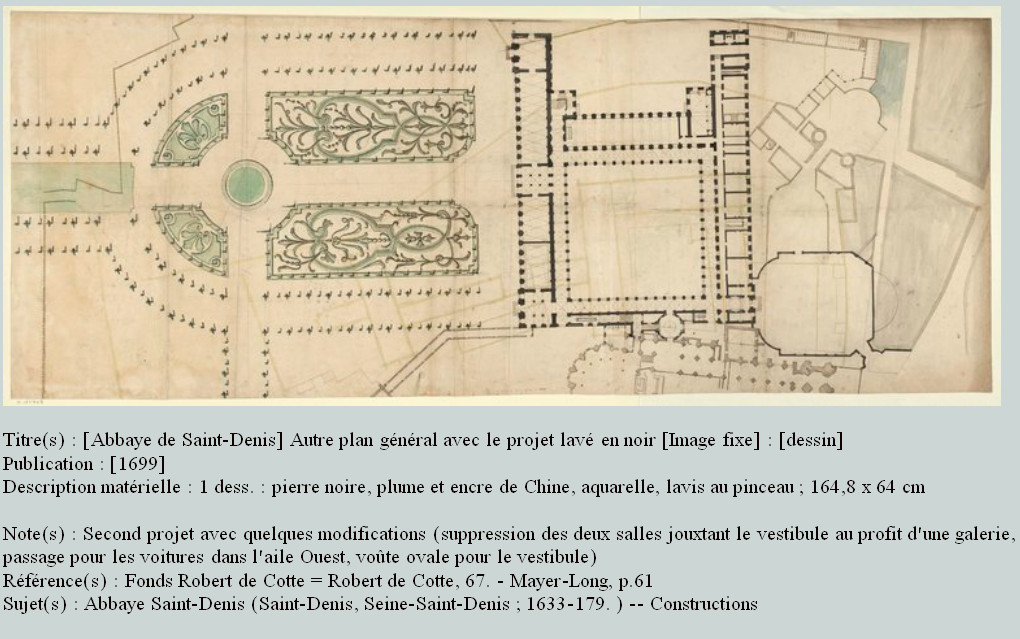 Titre(s) : [Abbaye de Saint-Denis] Autre plan général avec le projet lavé en noir [Image fixe] : [dessin]
Publication : [1699]
Description matérielle : 1 dess. : pierre noire, plume et encre de Chine, aquarelle, lavis au pinceau ; 164,8 x 64 cm
Note(s) : Second projet avec quelques modifications (suppression des deux salles jouxtant le vestibule au profit d'une galerie,
passage pour les voitures dans l'aile Ouest, voûte ovale pour le vestibule)
Référence(s) : Fonds Robert de Cotte = Robert de Cotte, 67. - Mayer-Long, p.61
Sujet(s) : Abbaye Saint-Denis (Saint-Denis, Seine-Saint-Denis ; 1633-179. ) -- Constructions